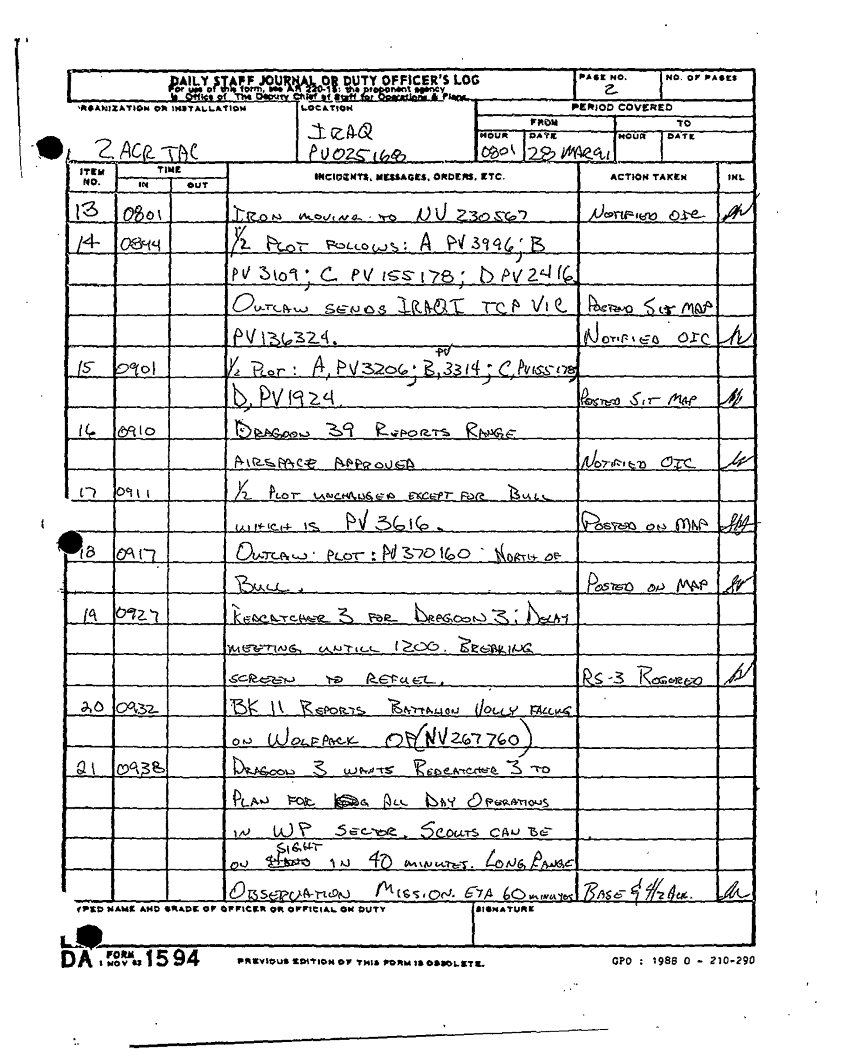 DAILY STAFF JOURNAL OR DUTY OFFICER'S LOG
For use of this form, see AR 220-15; the proponent agency
is Office of The Deputy Chief of Staff for Operations & Plans.
PAGE NO.
2
NO. OF PAGES
ORGANIZATION OR INSTALLATION
2 ACR TAC
LOCATION
IRAQ
PV025168
PERIOD COVERED
FROM
TO
HOUR
DATE
HOUR
DATE
0801
28 MAR91
ITEM NO.
TIME
IN
OUT
INCIDENTS, MESSAGES, ORDERS, ETC.
ACTION TAKEN
INL
13 0801 IRON MOVING TO NV 230567 NOTIFIED OIC
14 0844 1/2 PLOT FOLLOWS: A PV3996; B
PV 3109; C PV 155178; D PV2416
OUTLAW SENDS IRAQI TCP VIC POSTED SIT MAP
PV136324. NOTIFIED OIC
15 0901 1/2 PLOT: A, PV3206; B, PV 3314; C, PV155178
D, PV1924. POSTED SIT MAP
16 0910 DRAGOON 39 REPORTS RANGE
AIRSPACE APPROVED NOTIFIED OIC
17 0911 1/2 PLOT UNCHANGED EXCEPT FOR BULL
WHICH IS PV 3616. POSTED ON MAP
18 0917 OUTLAW PLOT: PV370160 NORTH OF
BULL. POSTED ON MAP
19 0927 REDCATCHER 3 FOR DRAGOON 3: DELAY
MEETING UNTILL 1200. BREAKING
SCREEN TO REFUEL. RS-3 ROGERED
20 0932 BK 11 REPORTS BATTALION VOLLY FALLING
ON WOLFPACK OP (NV267760)
21 0938 DRAGOON 3 WANTS REDCATCHER 3 TO
PLAN FOR ALL DAY OPERATIONS
IN WP SECTOR. SCOUTS CAN BE
ON SIGHT IN 40 MINUTES. LONG RANGE
OBSERVATION MISSION. ETA 60 MINUTES BASE & 4/2 ACK.
TYPED NAME AND GRADE OF OFFICER OR OFFICIAL ON DUTY
SIGNATURE
DA FORM 1 NOV 62 1594
PREVIOUS EDITION OF THIS FORM IS OBSOLETE.
GPO : 1988 O - 210-290